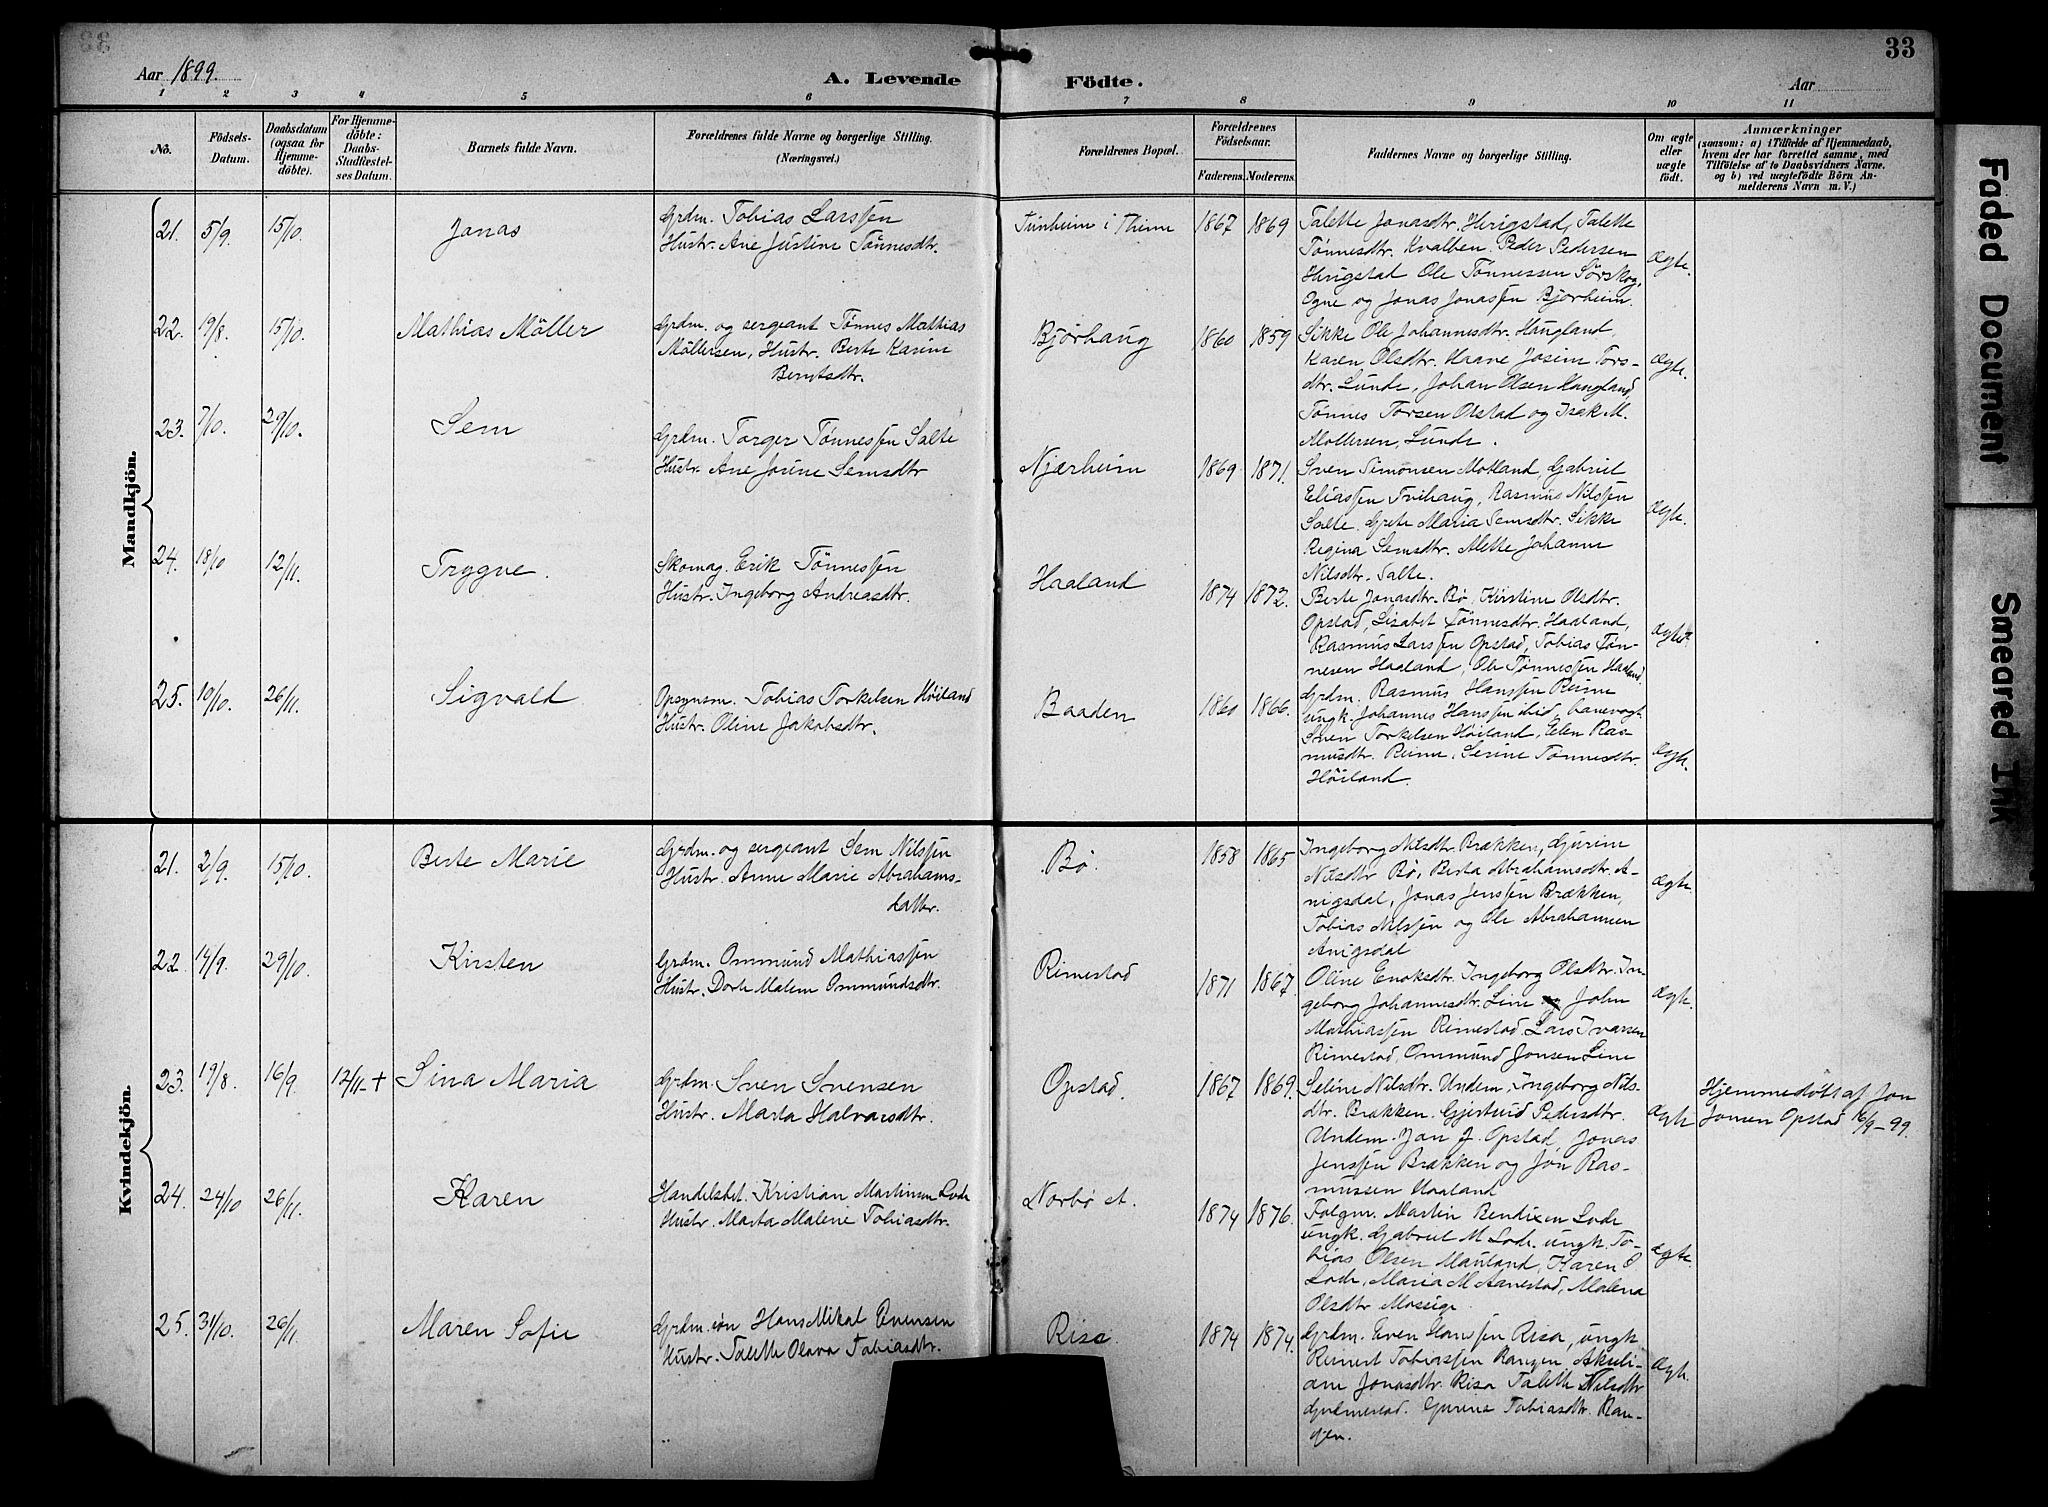 33
Aar 1899.
A. Levende Fødte.
Aar
1 2 3 4 5 6 7 8 9 10 11
No.
Fødsels-Datum.
Daabsdatum (ogsaa for Hjemmedøbte).
For Hjemmedøbte: Daabs-Stadfæstelses Datum.
Barnets fulde Navn.
Forældrenes fulde Navne og borgerlige Stilling. (Næringsvei.)
Forældrenes Bopæl.
Forældrenes Fødselsaar.
Faderens. Moderens.
Faddernes Navne og borgerlige Stilling.
Om ægte eller uægte født.
Anmærkninger
(saasom: a) i Tilfælde af Hjemmedaab, hvem der har forrettet samme, med Tilføielse af to Daabsvidners Navne. og b) ved uægtefødte Børn Anmelderens Navn m. V.)
Mandkjøn.
21. 5/9. 15/10. Jonas
Grdm. Tobias Larssen
Hustr. Ane Justine Tønnesdtr.
Tunheim i Thime 1867 1869
Talette Jonasdtr. Herigstad, Talette
Tønnesdtr. Kvalben. Peder Pedersen
Herigstad Ole Tønnessen Sørskog,
Ogne og Jonas Jonassen Bjorheim.
Ægte.
22. 19/8. 15/10. Mathias Möller
Grdm. og sergeant Tønnes Mathias
Möllersen, Hustr. Berte Karine
Berntsdtr.
Bjørhaug 1860 1859
Sikke Ole Johannesdtr. Haugland,
Karen Olsdtr. Haave Josine Tors-
dtr. Lunde, Johan Olsen Haugland,
Tønnes Torsen Olstad og Isak M.
Møllersen, Lunde.
Ægte.
23. 7/10. 29/10. Sem
Grdm. Torger Tønnessen Salte
Hustr. Ane Josine Semsdtr
Njærheim 1869 1871.
Sven Simonsen Motland, Gabriel
Eliassen Tvihaug, Rasmus Nilssen
Salte. Grete Maria Semsdtr. Sikke
Regina Semsdtr. Alette Johanne
Nilsdtr. Salte.
Ægte.
24. 18/10 12/11. Trygve.
Skomag. Erik Tønnessen
Hustr. Ingeborg Andreasdtr.
Haaland 1874 1872.
Berte Jonasdtr. Bø, Kirstine Olsdtr.
Opstad, Lisabet Tønnesdtr. Haaland,
Rasmus Larssen Opstad, Tobias Tøn-
nesen Haaland, Ole Tønnessen Haaland.
Ægte.
25. 10/10. 26/11. Sigvald
Opsynsm. Tobias Torkelsen Höiland
Hustr. Oline Jakobsdtr.
Baaden 1860 1866.
Grdm. Rasmus Hanssen Reime
ungk. Johannes Hanssen ibid, banevogt
Sven Torkelsen Höiland, Elen Ras-
musdtr. Reime, Serine Tønnesdtr.
Höiland.
Ægte.
Kvindekjön.
21. 2/9. 15/10. Berte Marie
Grdm. og sergeant Sem Nilssen
Hustr. Anne Marie Abrahams-
datter.
Bø. 1858 1865
Ingeborg Nilsdtr. Brækken, Gjurine
Nilsdtr Bø, Berta Abrahamsdtr. A-
nigsdal, Jonas Jenssen Brækken,
Tobias Nilssen og Ole Abrahamsen
Anigsdal
Ægte.
22. 14/9. 29/10. Kirsten
Grdm. Ommund Mathiassen
Hustr. Dorte Malene Ommundsdtr.
Rimestad 1871 1867.
Oline Enoksdtr. Ingeborg Olsdtr. In-
geborg Johannesdtr. Line John
Mathiassen Rimestad Lars Ivarsen
Rimestad, Ommund Jonsen Line
Ægte.
23. 19/8. 16/9. 12/11. † Sina Maria
Grdm. Sven Svensen
Hustr. Marta Halvarsdtr.
Opstad. 1867 1869.
Seline Nilsdtr. Undem, Ingeborg Nils-
dtr. Brækken. Gjertrud Pedersdtr.
Undem. Jan J. Opstad, Jonas
Jenssen Brækken og Jon Ras-
mussen Haaland
Ægte
Hjemmedøbt af Jon
Jonsen Opstad 16/9-99.
24. 24/10 26/11. Karen
Handelsbet. Kristian Martinsen Lode
Hustr. Marta Malene Tobiasdtr.
Norbø A. 1874 1876.
Folgm. Martin Bendixen Lode
ungk. Gabriel M Lode. ungk. To-
bias Olsen Mauland, Karen S
Lode, Maria M Aanestad, Malena
Olsdtr Mossige.
ægte.
25. 31/10. 26/11. Maren Sofie
Grdm. søn Hans Mikal Evensen
Hustr. Talette Olava Tobiasdtr.
Risa. 1874 1874.
Grdm. Even Hanssen Risa, ungk
Reinert Tobiassen Rangen, Akseli-
ane Jonasdtr. Risa Talette Nilsdtr
Gudmestad. Gurine Tobiasdtr. Ran-
gen.
Ægte.
Faded Document
Smeared Ink